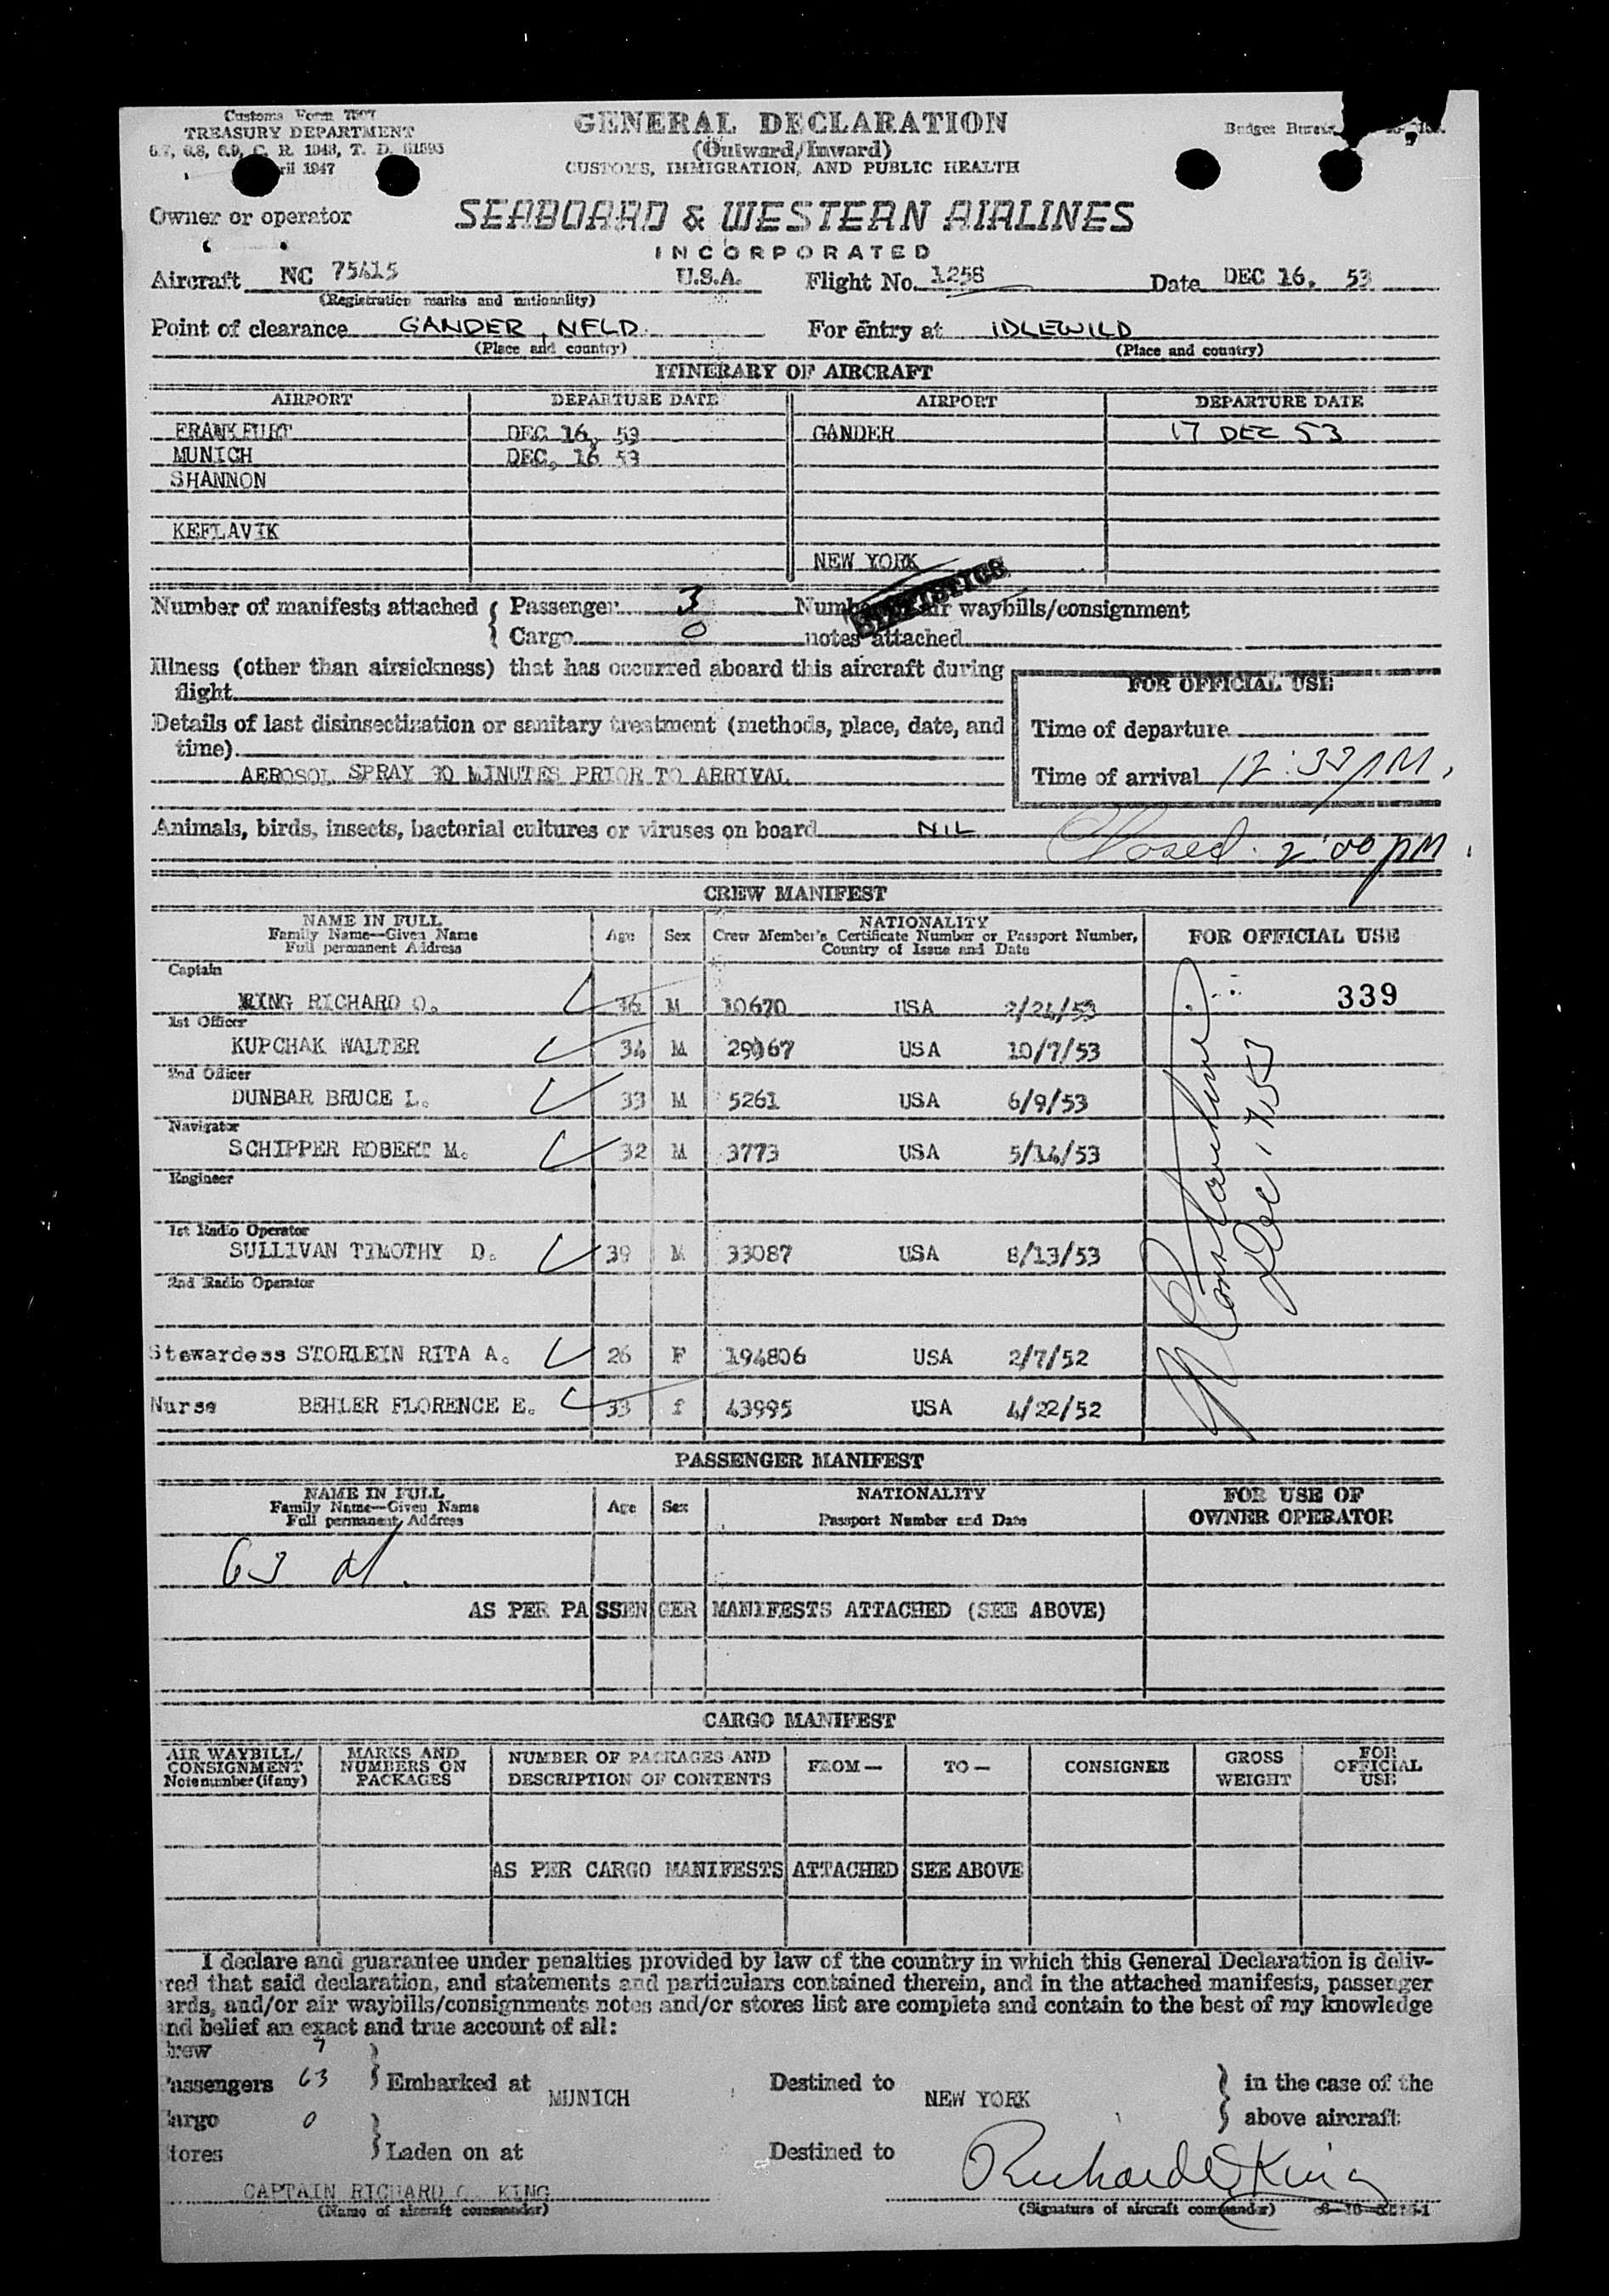 Customs Form 7507
TREASURY DEPARTMENT
6.7, 6.8, 6.9, C. R. 1943, T. D. 51593
ril 1947
GENERAL DECLARATION
(Outward/Inward)
CUSTOMS, IMMIGRATION, AND PUBLIC HEALTH
Budget Bureau
Owner or operator
SEABOARD & WESTERN AIRLINES
INCORPORATED
Aircraft NC 75415 U.S.A. Flight No. 1258 Date DEC 16, 53
(Registration marks and nationality)
Point of clearance GANDER, NFLD. For entry at IDLEWILD
(Place and country) (Place and country)
ITINERARY OF AIRCRAFT
AIRPORT DEPARTURE DATE AIRPORT DEPARTURE DATE
FRANKFURT DEC 16, 53 GANDER 17 DEC 53
MUNICH DEC, 16 53
SHANNON
KEFLAVIK
NEW YORK
STATISTICS
Number of manifests attached { Passenger 3 Number of air waybills/consignment
Cargo 0 notes attached
Illness (other than airsickness) that has occurred aboard this aircraft during
flight
FOR OFFICIAL USE
Details of last disinsectization or sanitary treatment (methods, place, date, and
time)
Time of departure
AEROSOL SPRAY 30 MINUTES PRIOR TO ARRIVAL
Time of arrival 12:33 PM.
Animals, birds, insects, bacterial cultures or viruses on board NIL
Closed. 2:00 PM.
CREW MANIFEST
NAME IN FULL
Family Name—Given Name
Full permanent Address
Age Sex
NATIONALITY
Crew Member's Certificate Number or Passport Number,
Country of Issue and Date
FOR OFFICIAL USE
Captain
KING RICHARD O. 36 M 10670 USA 2/24/53
339
1st Officer
KUPCHAK WALTER 34 M 29067 USA 10/7/53
2nd Officer
DUNBAR BRUCE L. 33 M 5261 USA 6/9/53
Navigator
SCHIPPER ROBERT M. 32 M 3773 USA 5/14/53
Engineer
1st Radio Operator
SULLIVAN TIMOTHY D. 39 M 33087 USA 8/13/53
2nd Radio Operator
Stewardess STORLEIN RITA A. 26 F 194806 USA 2/7/52
Nurse BEHLER FLORENCE E. 33 f 43995 USA 4/22/52
Dec. 17, 53
PASSENGER MANIFEST
NAME IN FULL
Family Name—Given Name
Full permanent Address
Age Sex
NATIONALITY
Passport Number and Date
FOR USE OF
OWNER OPERATOR
63
AS PER PASSENGER MANIFESTS ATTACHED (SEE ABOVE)
CARGO MANIFEST
AIR WAYBILL/
CONSIGNMENT
Note number (if any)
MARKS AND
NUMBERS ON
PACKAGES
NUMBER OF PACKAGES AND
DESCRIPTION OF CONTENTS
FROM—
TO—
CONSIGNEE
GROSS
WEIGHT
FOR
OFFICIAL
USE
AS PER CARGO MANIFESTS ATTACHED SEE ABOVE
I declare and guarantee under penalties provided by law of the country in which this General Declaration is deliv-
red that said declaration, and statements and particulars contained therein, and in the attached manifests, passenger
ards, and/or air waybills/consignments notes and/or stores list are complete and contain to the best of my knowledge
nd belief an exact and true account of all:
Crew 7
Passengers 63 } Embarked at MUNICH Destined to NEW YORK } in the case of the
above aircraft:
Cargo 0
Stores } Laden on at Destined to
CAPTAIN RICHARD O. KING Richard O King
(Name of aircraft commander) (Signature of aircraft commander)